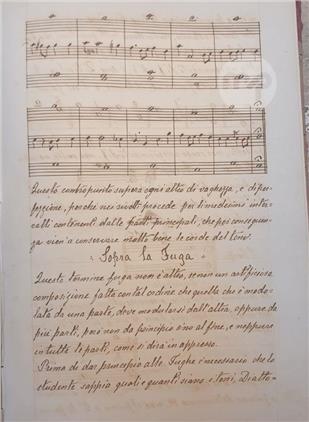 Questo contrapunto supera ogni altro di vaghezza, e di per-
fezzione, perchè nei rivolti procede per i medesimi inter-
valli contenenti dalle parti principali, che per conseguen-
za viene a conservare molto bene le corde del tono.
Sopra la Fuga
Questo termine fuga non è altro, se non un artificiosa
composizione fatta con tal ordine che quello che è modu-
lato da una parte, deve modularsi dall'altra, oppure da
più parti, però non da principio sino al fine, e neppure
in tutte le parti, come si dirà in appresso.
Prima di dar principio alle Fughe è necessario che lo
studente sappia quali e quanti siano i toni. Di alto-